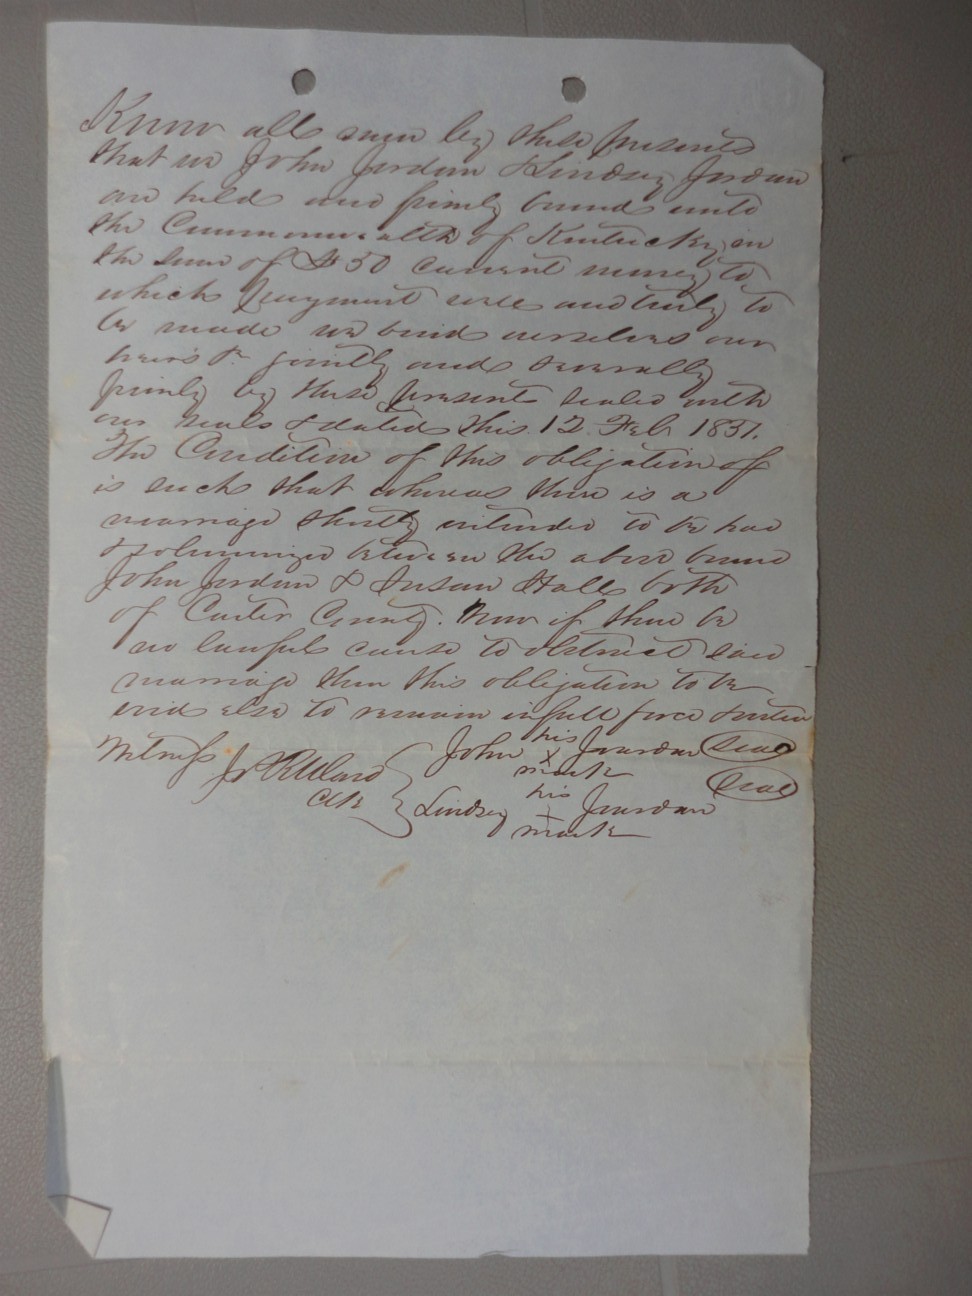 Know all men by these presents
that we John Jordan & Lindsey Jordan
are held and firmly bound unto
the Commonwealth of Kentucky, in
the sum of $50 current money to
which payment well and truly to
be made we bind ourselves our
heirs &c jointly and severally
firmly by these presents sealed with
our seals & dated this 12 Feb 1851.
The Condition of this obligation of
is such that whereas there is a
marriage shortly intended to be had
& solemnized between the above bound
John Jordan & Susan Halls both
of Carter County. Now if there be
no lawful cause to obstruct said
marriage then this obligation to be
void else to remain in full force & virtue
Witness John his X mark Jourdan Seal
Clk Lindsey his + mark Jourdan Seal